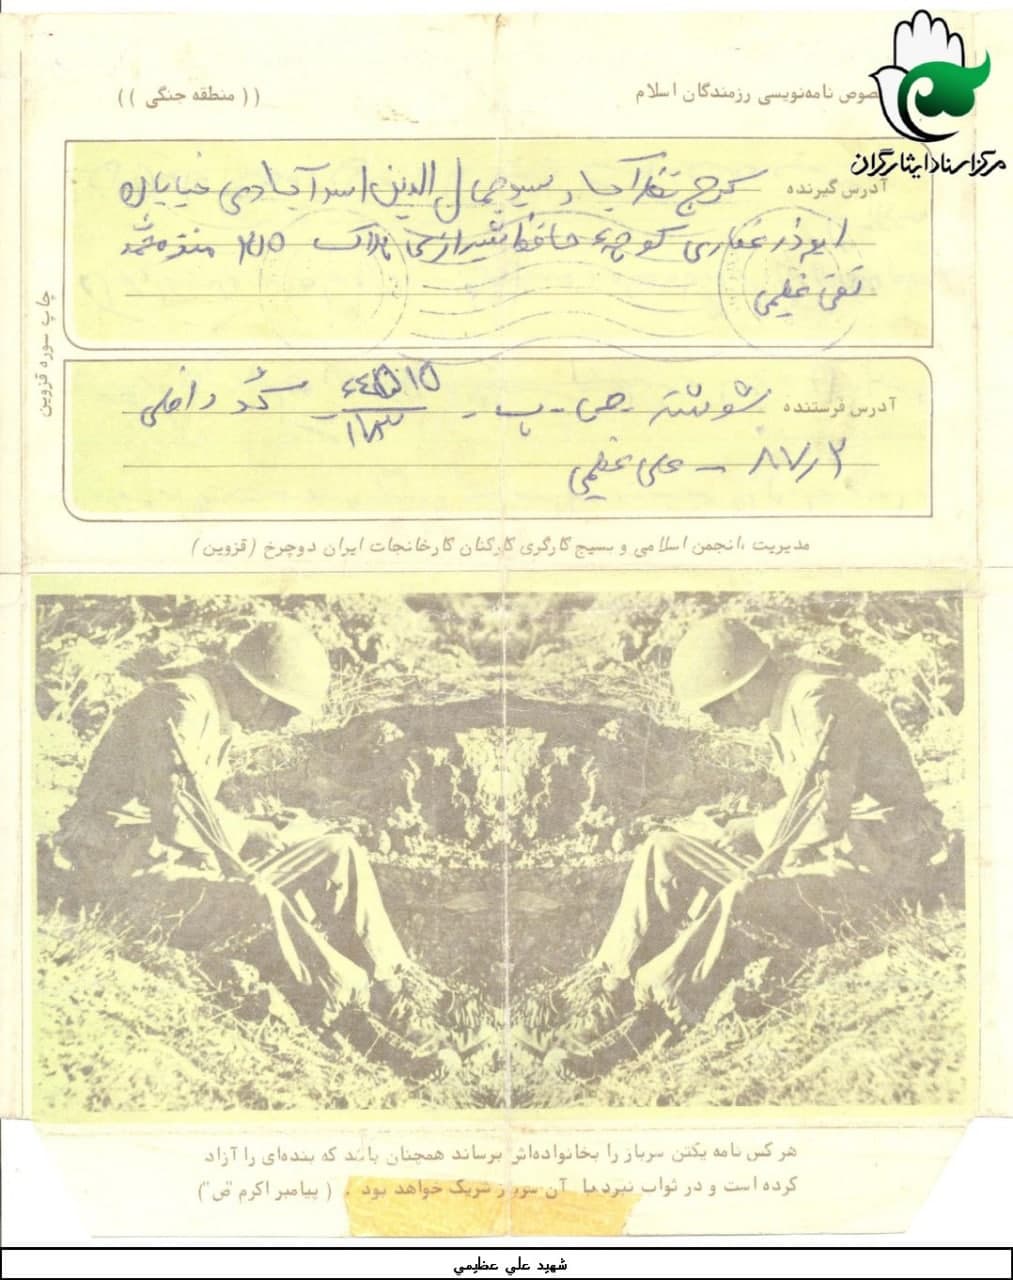 مرکز اسناد ایثارگران
مخصوص نامه‌نویسی رزمندگان اسلام (( منطقه جنگی ))
آدرس گیرنده کرج سید جمال الدین اسد آبادی خیابان
ابوذر غفاری کوچه حافظ شیرازی پلاک
تقی عظیمی
چاپ سوره قزوین
آدرس فرستنده شوشتر - ص - پ - کد داخلی
۸۷/۳ - علی عظیمی
مدیریت ،انجمن اسلامی و بسیج کارگری کارکنان کارخانجات ایران دوچرخ (قزوین)
هر کس نامه یکتن سرباز را بخانواده‌اش برساند همچنان باشد که بنده‌ای را آزاد
کرده است و در ثواب نبردها آن سرباز شریک خواهد بود . ( پیامبر اکرم "ص")
شهید علي عظیمي